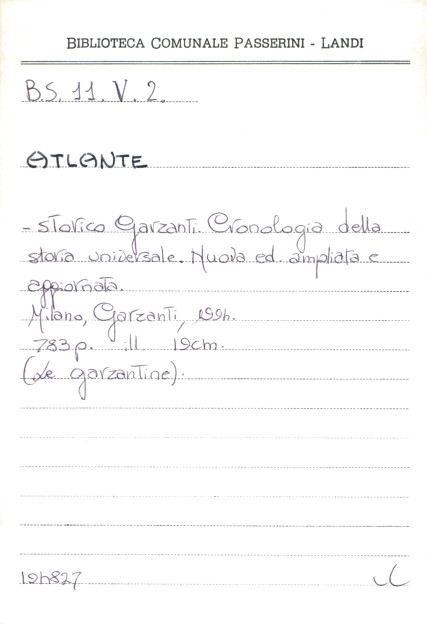 BIBLIOTECA COMUNALE PASSERINI - LANDI
B.S. 11. V. 2.
ATLANTE
- storico Garzanti. Cronologia della
storia universale. Nuova ed. ampliata e
aggiornata.
Milano, Garzanti, 1994.
783 p. ill. 19 cm.
(Le garzantine).
194827